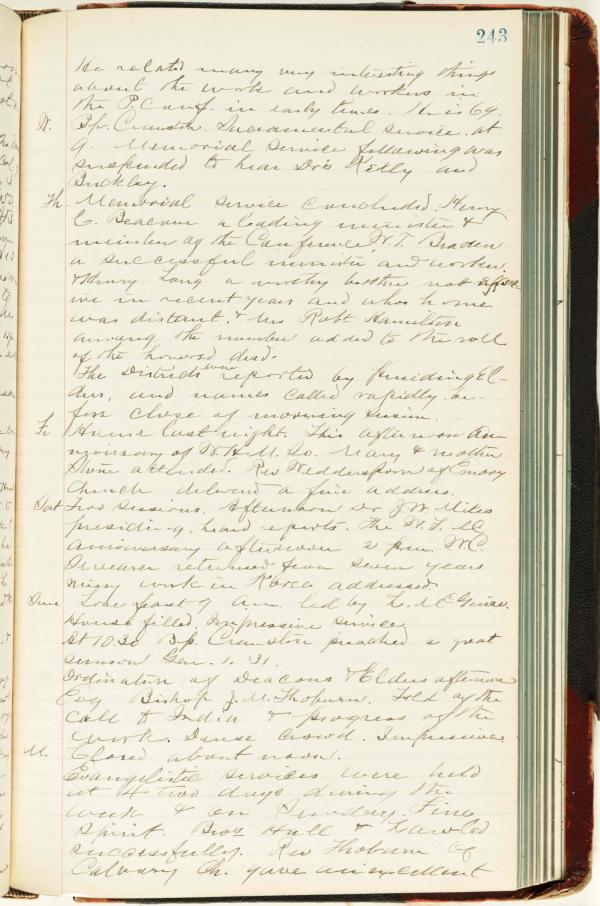 243
He related many very interesting things
about the work and workers in
the P. Conf. in early times. He is 69.
W. Bp. Cranston. Sacramental service. at
9. Memorial service following was
suspended to hear Drs Kelly and
Buckley.
Th. Memorial service concluded. Henry
C. Beacom a leading minister &
member of the Conference, W. T. Braden
a successful minister and worker,
& Henry Long a worthy brother not effect
ive in recent years and whos home
was distant. & Mrs Robt Hamilton
among the number added to the roll
of the honored dead.
The Districts were reported by Presiding El-
ders, and names called rapidly be-
fore close of morning session.
Fr. Home last night. This afternoon An-
niversary of W. H. M. So. Mary & mother
Stone attended. Rev Weddersporn of Emory
Church delivered a fine address.
Sat Two sessions. Afternoon Dr J. W. Miles
presiding, heard reports. The W. F. M.
anniversary afternoon 2 p.m. W. C.
Swearer returned from seven years
missy work in Korea addressed.
Love feast 9 a.m. led by L. McGuire.
House filled. Impressive service.
At 10.30 Bp. Cranston preached a great
sermon Gen. 1. 31.
Ordination of Deacons & Elders afternoon
Evg Bishop J. M. Thoburn. Told of the
call to India & progress of the
work. Dense crowd. Impressive.
M. Closed about noon.
Evangelistic services were held
at 4 two days during the
week & on Sunday. Fine
spirit. Bros Hall & led
successfully. Rev Thoburn of
Calvary Ch. gave an excellent